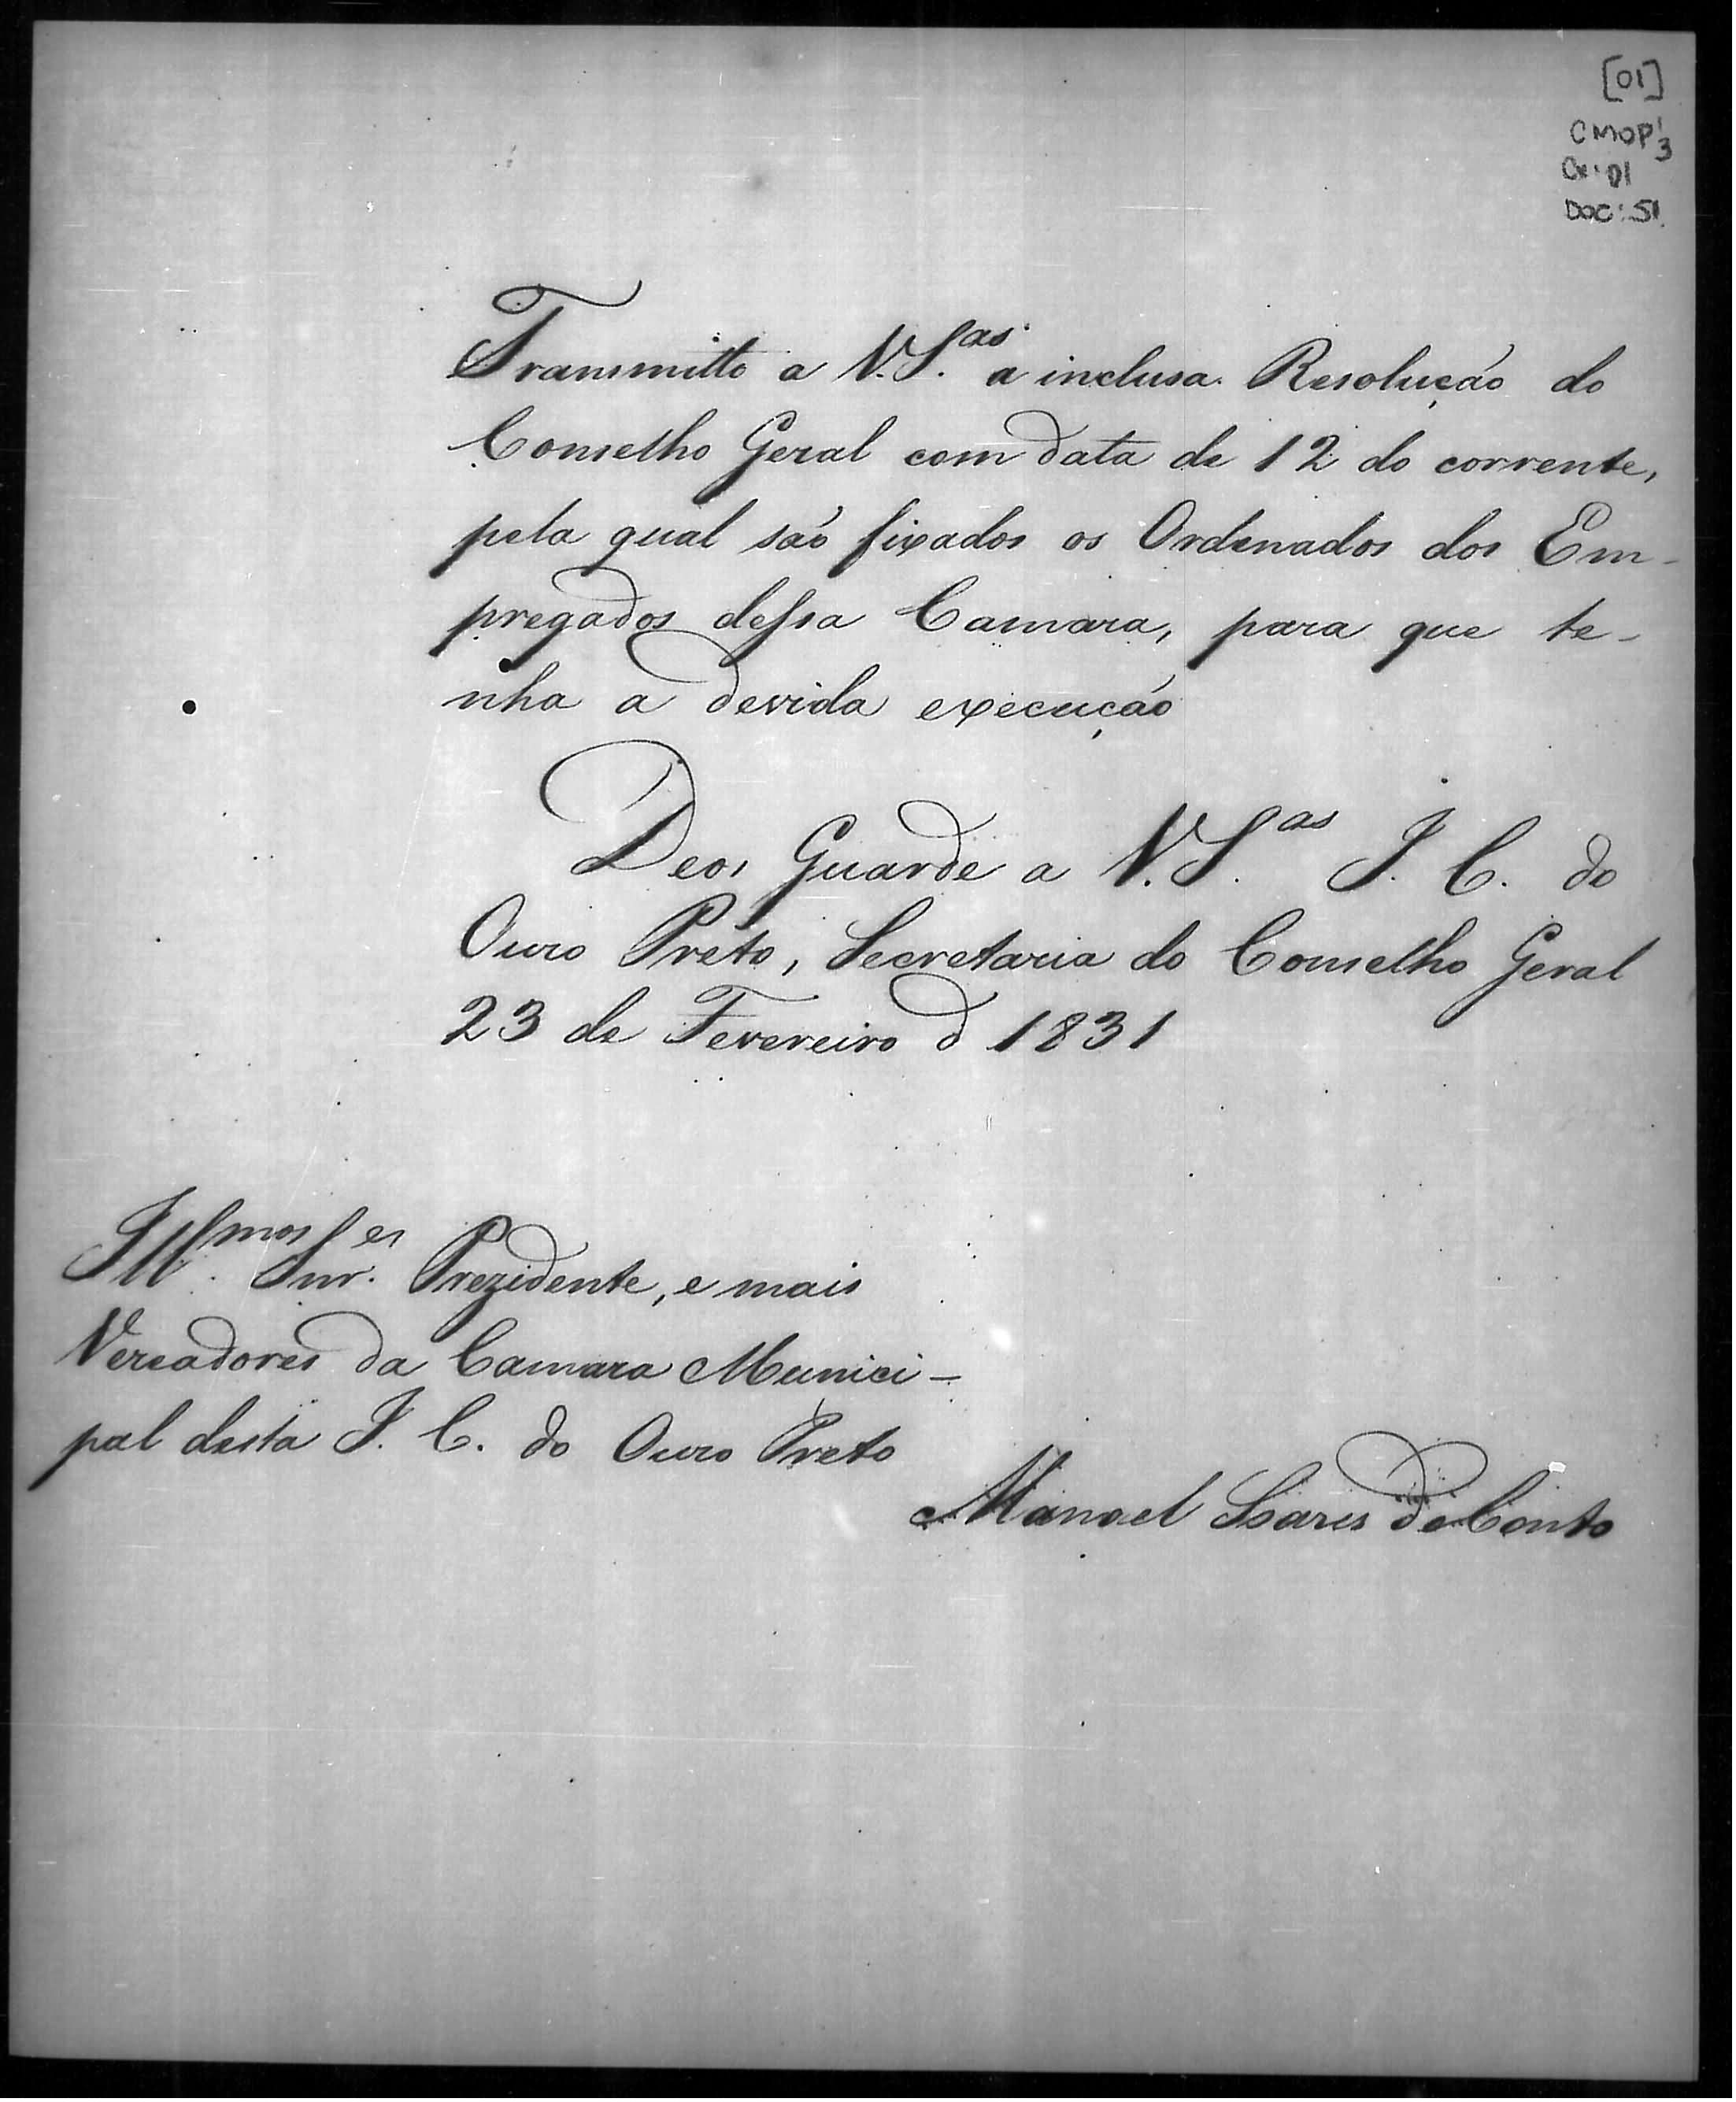 [01]
CMOP 1/3
Cx: 01
DOC: 51
Transmitto a V.S.as a inclusa Resolução do
Conselho Geral com data de 12 do corrente,
pela qual são fixados os Ordenados dos Em-
pregados dessa Camara, para que te-
nha a devida execução
Deos Guarde a V.S.as I. C. do
Ouro Preto, Secretaria do Conselho Geral
23 de Fevereiro d 1831
Ill.mos Snr.es Prezidente, e mais
Vereadores da Camara Munici-
pal desta I. C. do Ouro Preto
Manoel Soares do Couto